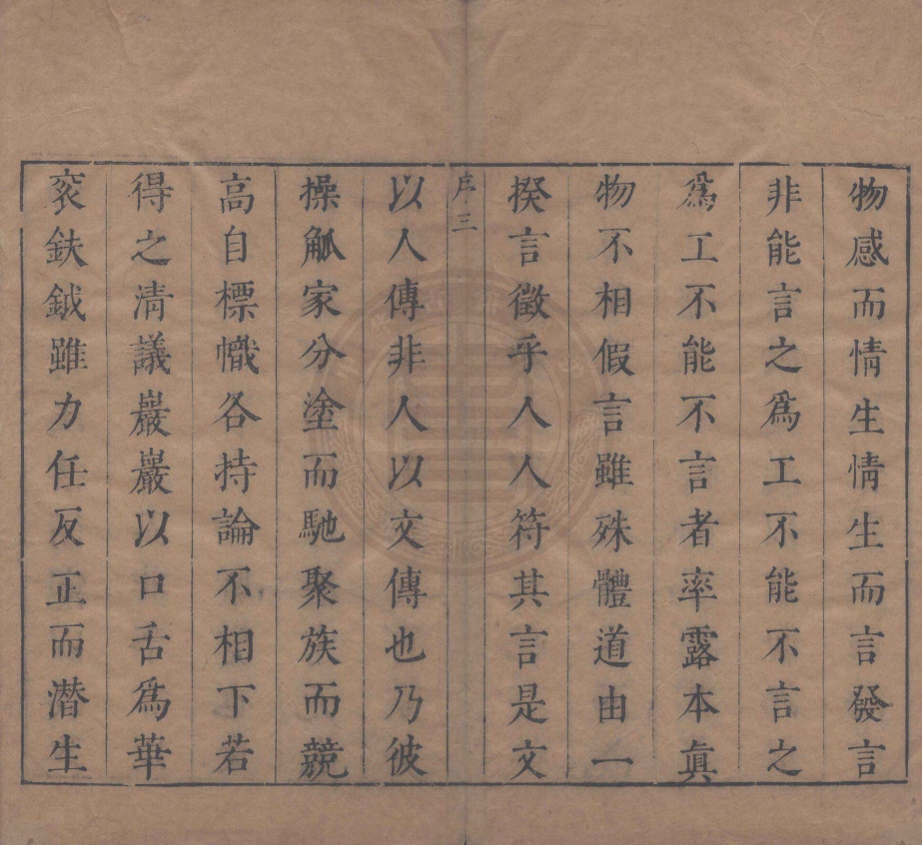 物感而情生情生而言發言
非能言之爲工不能不言之
爲工不能不言者率露本眞
物不相假言雖殊體道由一
揆言徵乎人人符其言是文
序三
以人傳非人以文傳也乃彼
操觚家分塗而馳聚族而競
高自標幟各持論不相下若
得之淸議巖巖以口舌爲華
衮鈇鉞雖力任反正而潜生